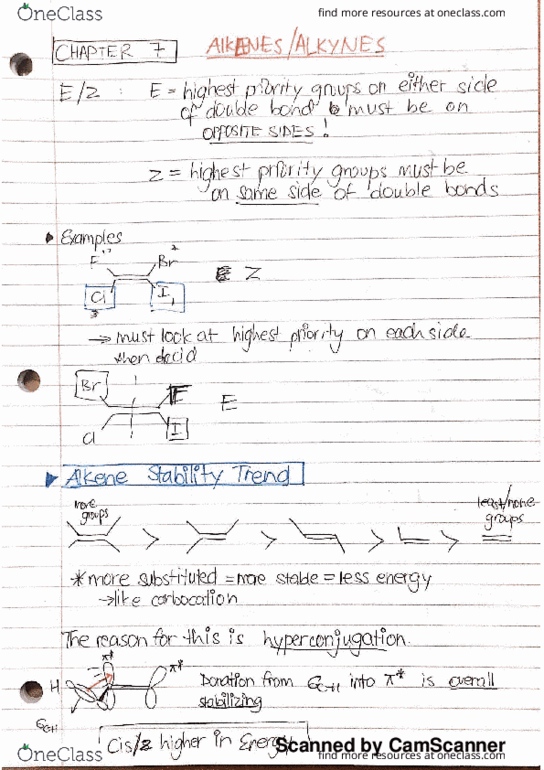 OneClass
find more resources at oneclass.com
CHAPTER 7
ALKENES/ALKYNES
E/Z : E = highest priority groups on either side
of double bond must be on
OPPOSITE SIDES!
Z = highest priority groups must be
on same side of double bonds
Examples
F Br 2
Z
Cl I 1
3
→ must look at highest priority on each side
then decid
Br F
E
Cl I
Alkene Stability Trend
more groups
least/none groups
> > > >
*more substituted = more stable = less energy
→ like carbocation
The reason for this is hyperconjugation.
π*
π*
H
Donation from σC-H into π* is overall
stabilizing
σC-H
Cis/Z higher in Energy
Scanned by CamScanner
OneClass
find more resources at oneclass.com